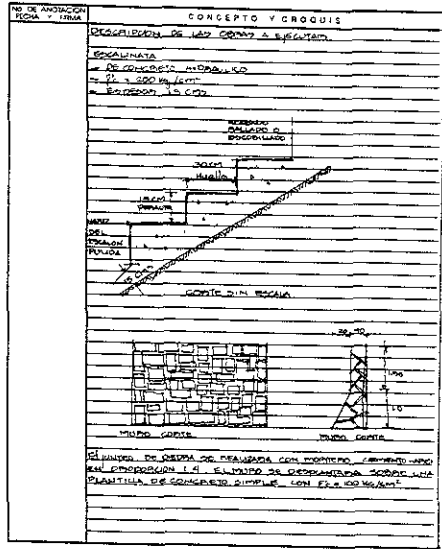 NO. DE ANOTACION
FECHA Y FIRMA
CONCEPTO Y CROQUIS
DESCRIPCION DE LAS OBRAS A EJECUTAR
ESCALINATA
- DE CONCRETO HIDRAULICO
- F'c = 200 Kg/cm²
- ESPESOR 15 CMS
ACABADO
RALLADO O
ESCOBILLADO
30CM
HUELLA
15CM
PERALTE
NARIZ
DEL
ESCALON
PULIDA
15 CMS
CORTE SIN ESCALA
MURO CORTE
MURO CORTE
EL JUNTEO DE PIEDRA SE REALIZARA CON MORTERO CEMENTO-
EN PROPORCION 1:4. EL MURO SE DESPLANTARA SOBRE UNA
PLANTILLA DE CONCRETO SIMPLE CON F'c = 100 KG/CM²